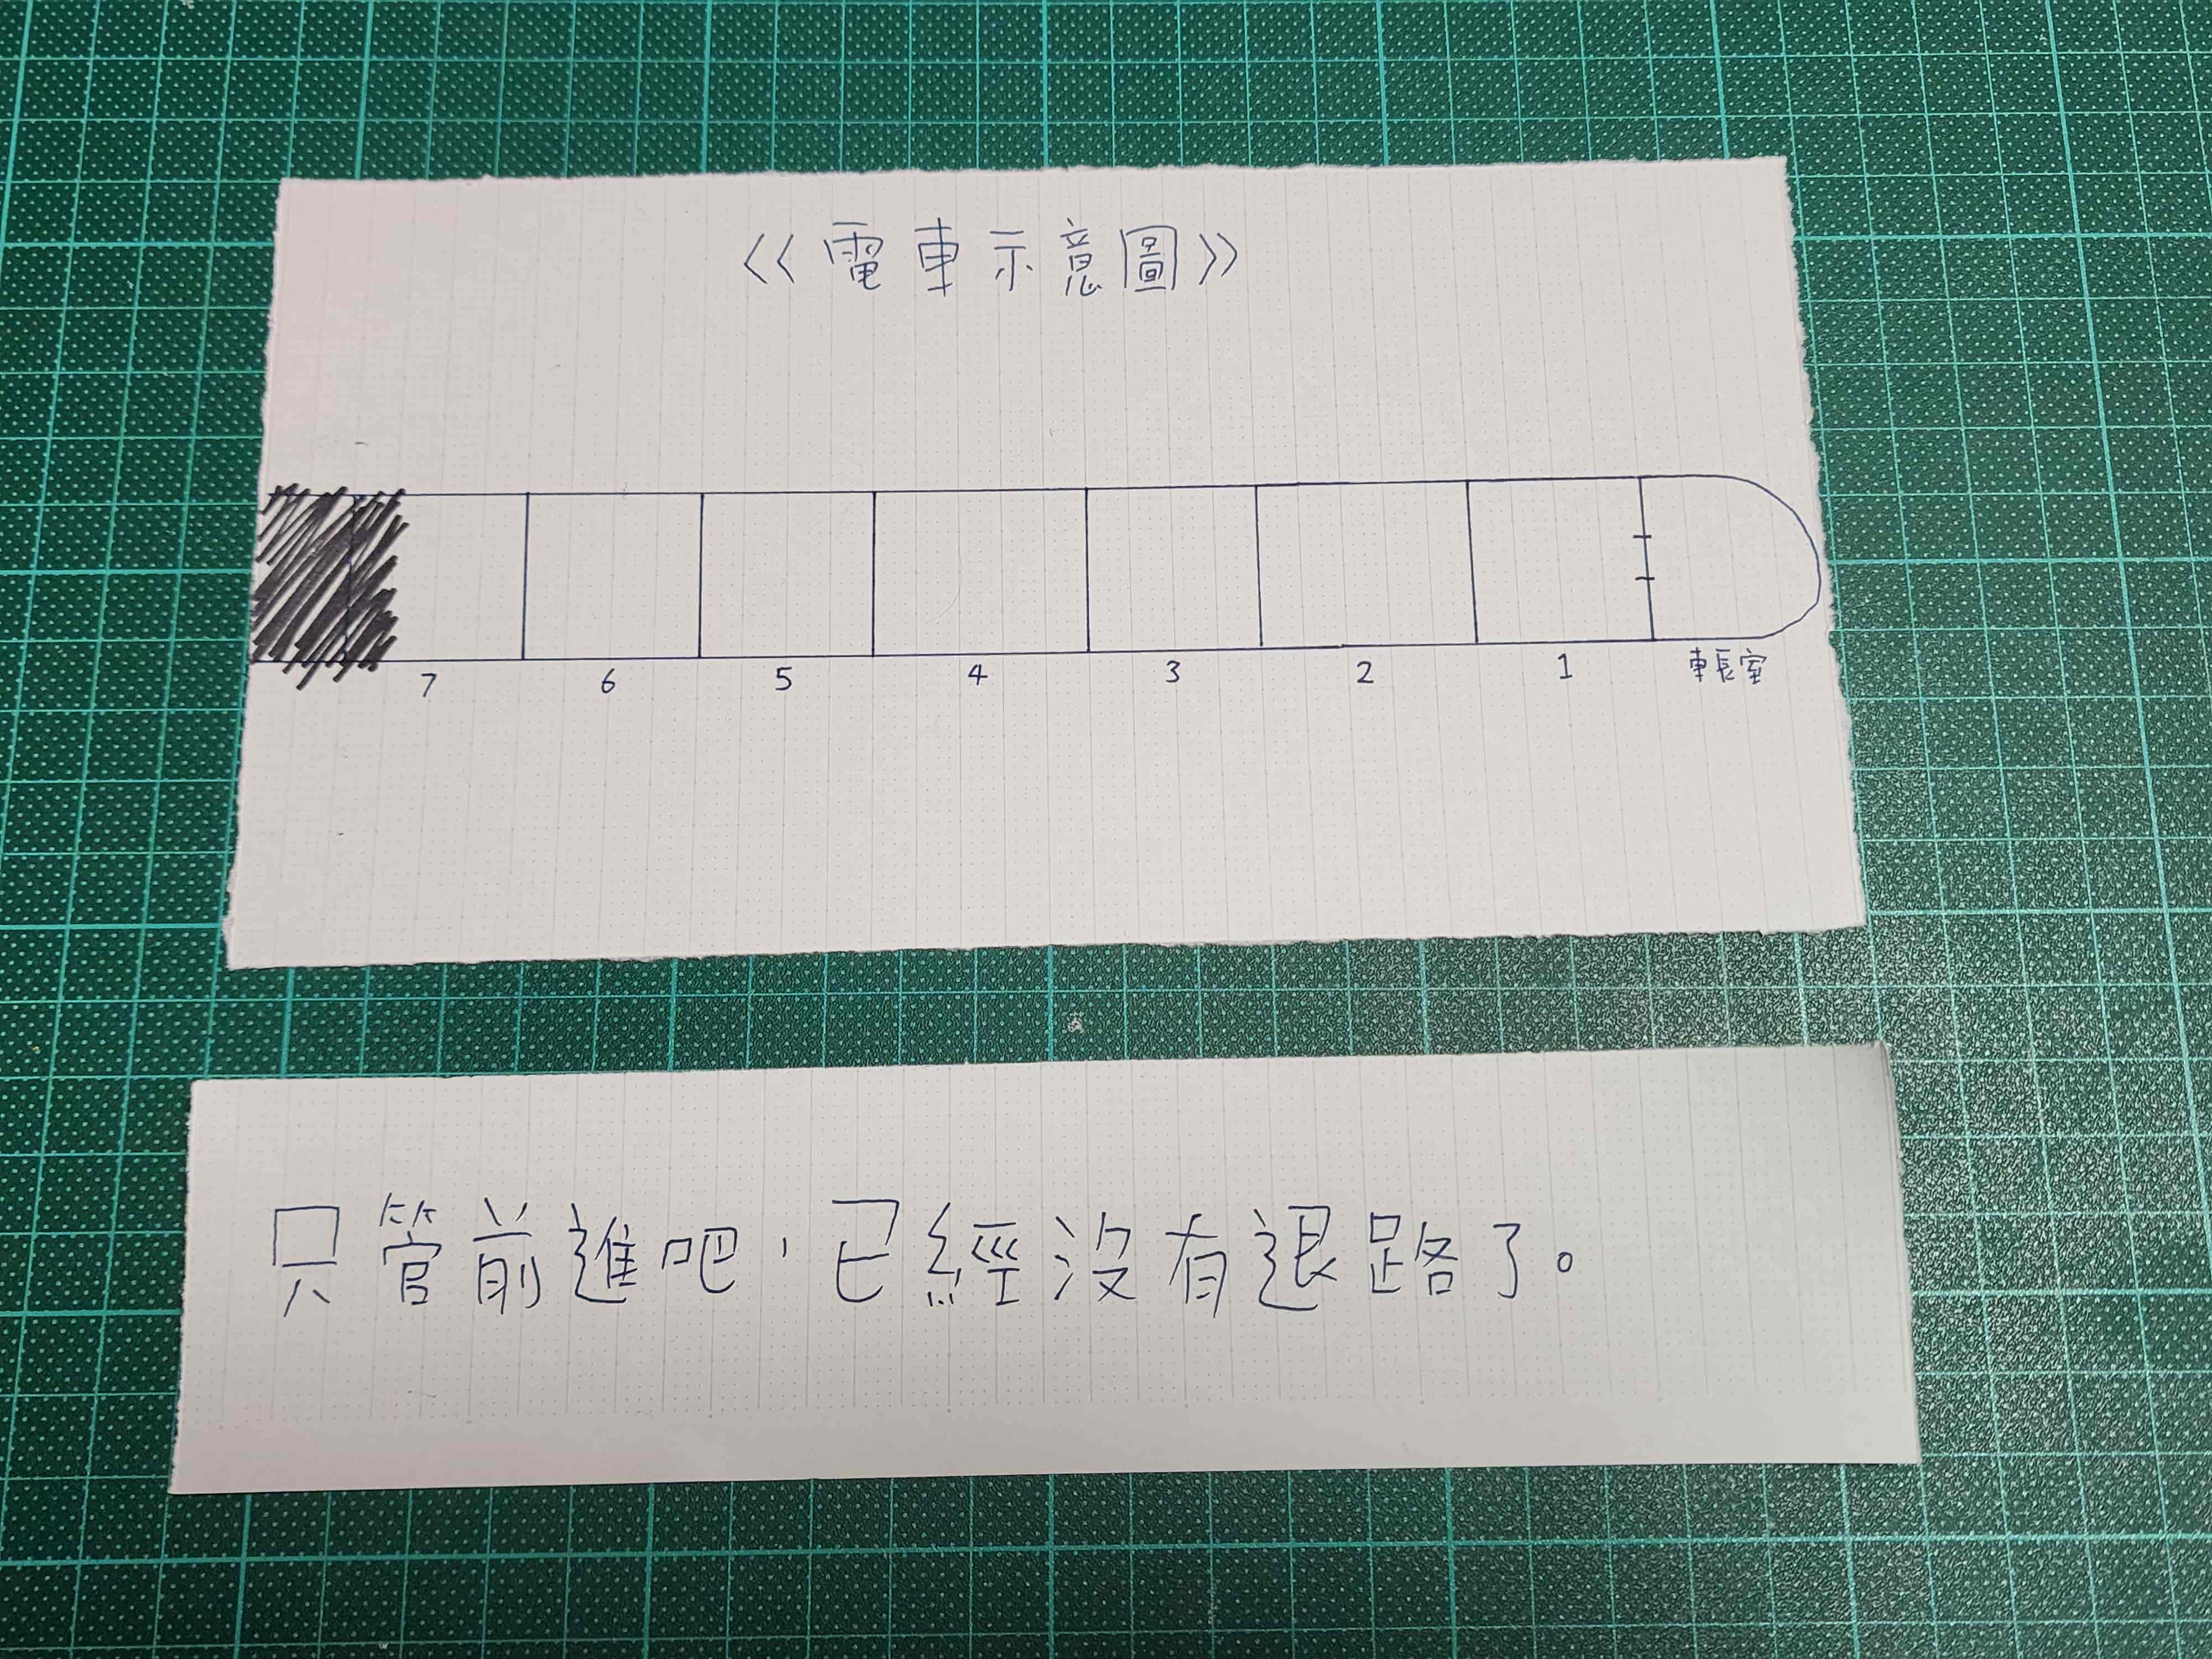 《電車示意圖》
7 6 5 4 3 2 1 車長室
只管前進吧，已經沒有退路了。